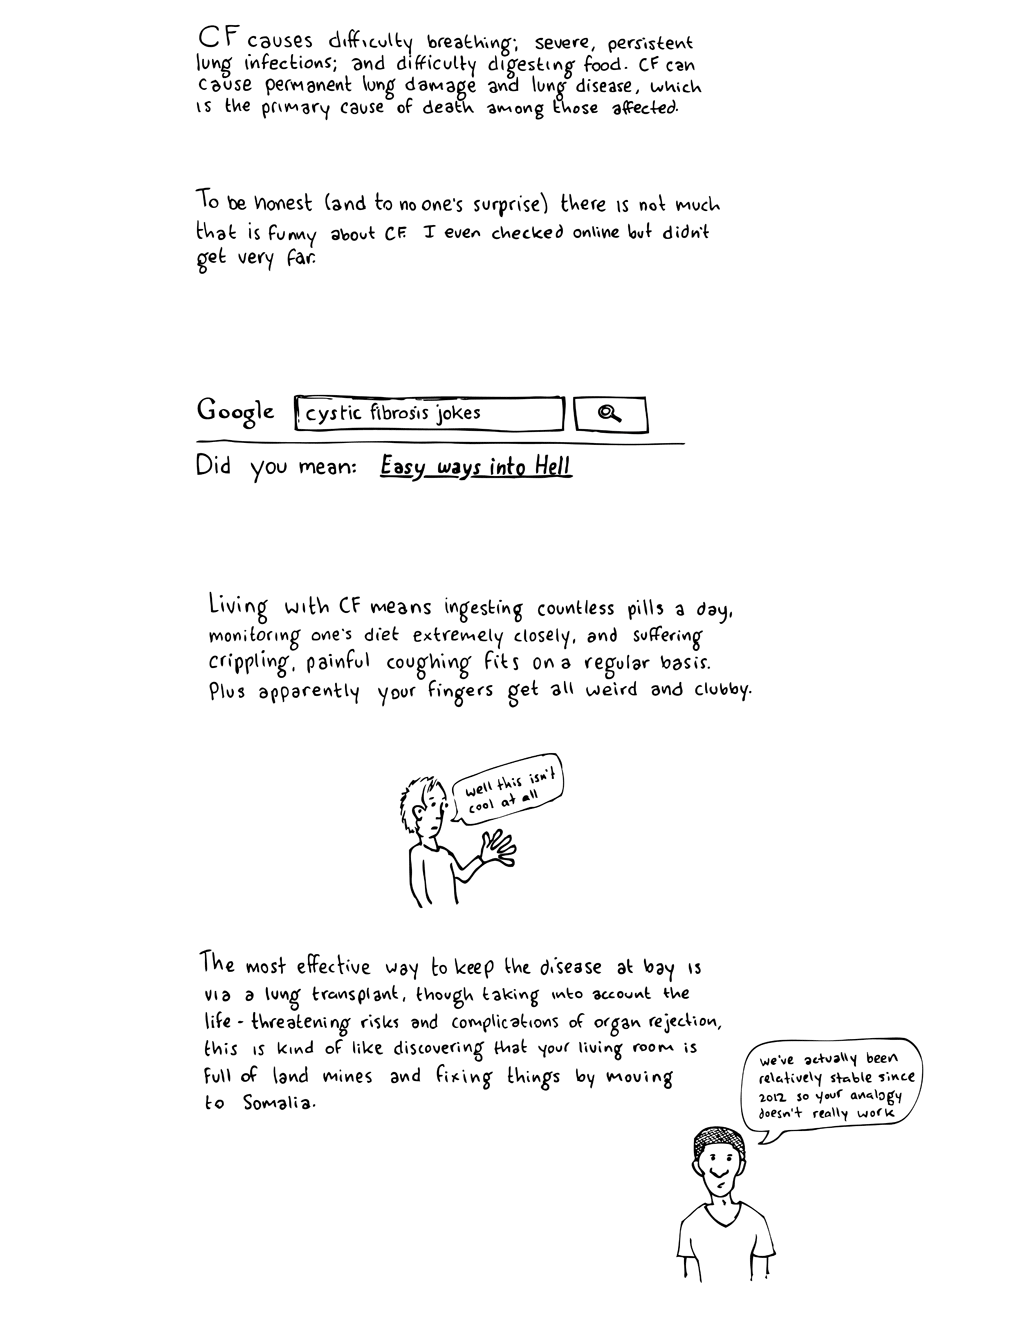 CF causes difficulty breathing; severe, persistent
lung infections; and difficulty digesting food. CF can
cause permanent lung damage and lung disease, which
is the primary cause of death among those affected.
To be honest (and to no one's surprise) there is not much
that is funny about CF. I even checked online but didn't
get very far.
Google cystic fibrosis jokes
Did you mean: Easy ways into Hell
Living with CF means ingesting countless pills a day,
monitoring one's diet extremely closely, and suffering
crippling, painful coughing fits on a regular basis.
Plus apparently your fingers get all weird and clubby.
well this isn't
cool at all
The most effective way to keep the disease at bay is
via a lung transplant, though taking into account the
life-threatening risks and complications of organ rejection,
this is kind of like discovering that your living room is
full of land mines and fixing things by moving
to Somalia.
we've actually been
relatively stable since
2012 so your analogy
doesn't really work